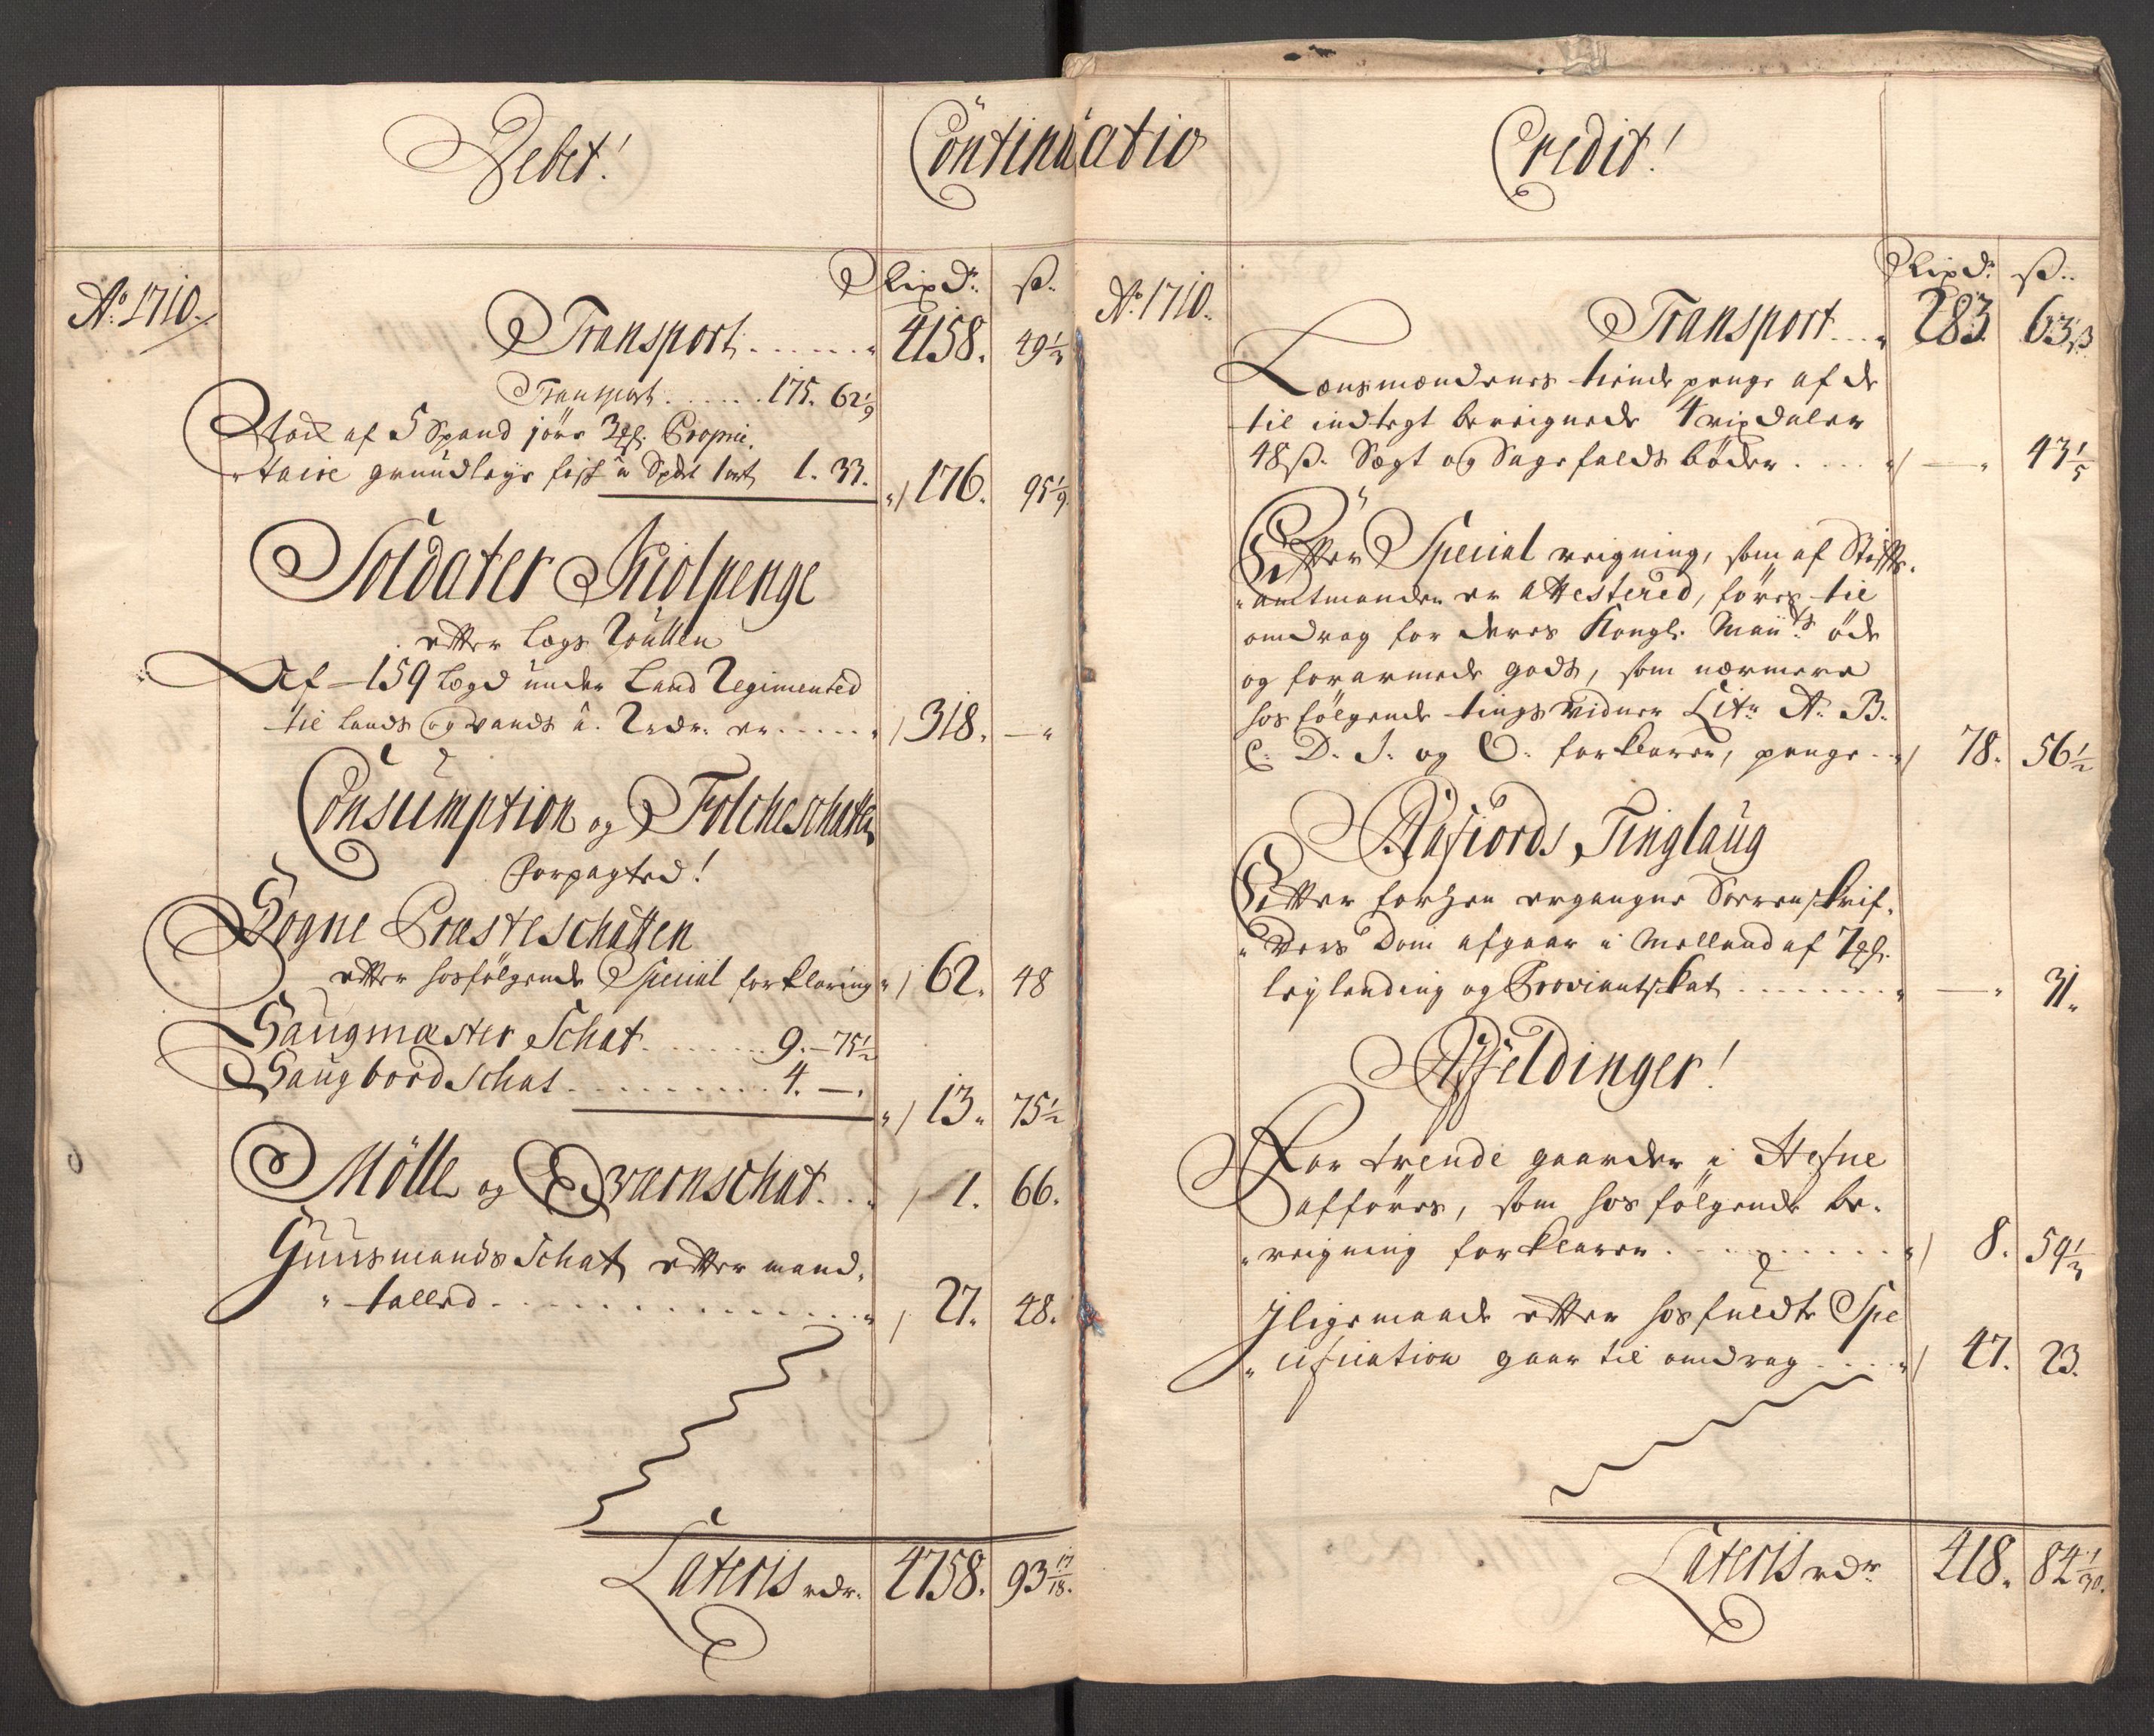 Debet!
Continuatio
Rixdr. ß.
Ao. 1710.
Transport . . . . . . 4158. 49 1/3
Transport . . . . . . 175. 62 1/9
af 5 Spand jörs 3 Proprie,
taire grundleige 1 ort 1. 33. 176. 95 1/9.
Soldater Kiolpenge
efter Legs Roullen
Af 159 Legd under Land Regimented
til lands og vands â. 2 rdr. er . . . . . 318. —
Consumption og Folcheschatten
Forpagted!
Sogne Præsteschatten
efter hosfølgende Special forklaring 62. 48
Saugmæster Schat . . . . . . 9. — 75 1/2
Saugbordschat . . . . . . . . . 4. —.
13. 75 1/2
Mölle og Qvarnschat . . . 1. 66.
Huusmands Schat efter mand,
tallet . . . . . . . . . . . . . . . 27. 48.
Lateris rdr. 4758. 93 17/18.
Credit!
Rixdr. ß.
Ao. 1710.
Transport . . . 283. 63 ß
Lensmændenes tiende penge af de
til indtegt bereignede 4 rixdaler
48 ß. Sigt og Sagefalds bøder . . . . — 43 1/5
Efter Special reigning, som af Stifts,
amtmanden er attestered, føres til
omdrag for deres Kongl. Maÿts. øde
og forarmede gods, som nærmere
hosfølgende tings vidner Litr. A. B.
C. D. og forklarer, penge . . 78. 56 1/2
Aafiords Tinglaug
Efter forhen ergangne Sorenskrif,
vers Dom afgaar i Melland af 1
leylending og Proviantskat . . . . . . . . — 31.
Affeldinger!
For trende gaarder i Hefne
afføres, som hosfølgende be,
reigning forklarer . . . . . . . . . 8. 59 1/3
Iligemaade efter hosfuldte Spe
cification gaar til omdrag . . . . 47. 23.
Lateris rdr 418. 84 1/30.